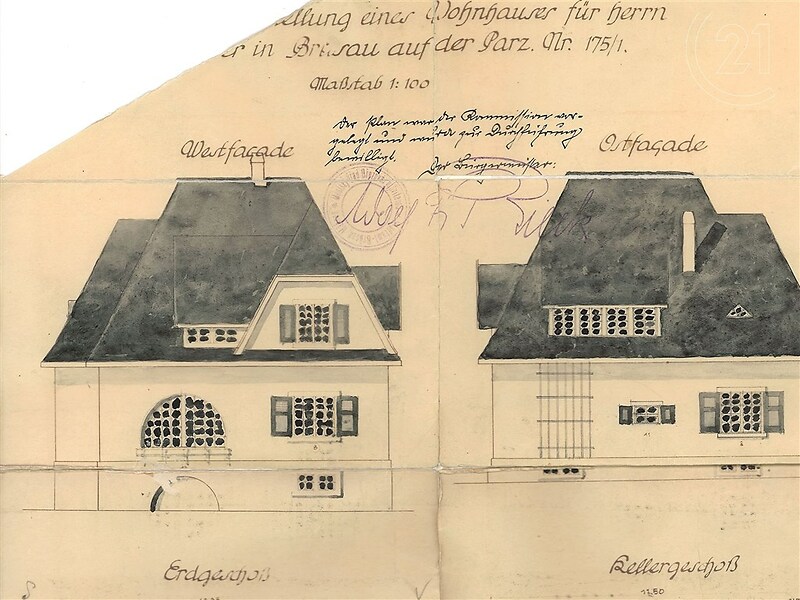 eines Wohnhauses für Herrn
in Brüsau auf der Parz. Nr. 175/1.
Maßstab 1:100
Der Plan war der Kommission vor-
gelegt und wurde zur Durchführung
bewilligt.
Der Bürgermeister:
Westfaçade
Ostfaçade
21
Erdgeschoß
Kellergeschoß